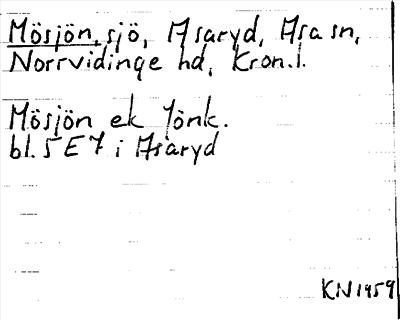 Mösjön, sjö, Asaryd, Asa sn,
Norrvidinge hd, Kron.l.
Mösjön ek Jönk.
bl. 5 E 7 i Asaryd
KN 1959